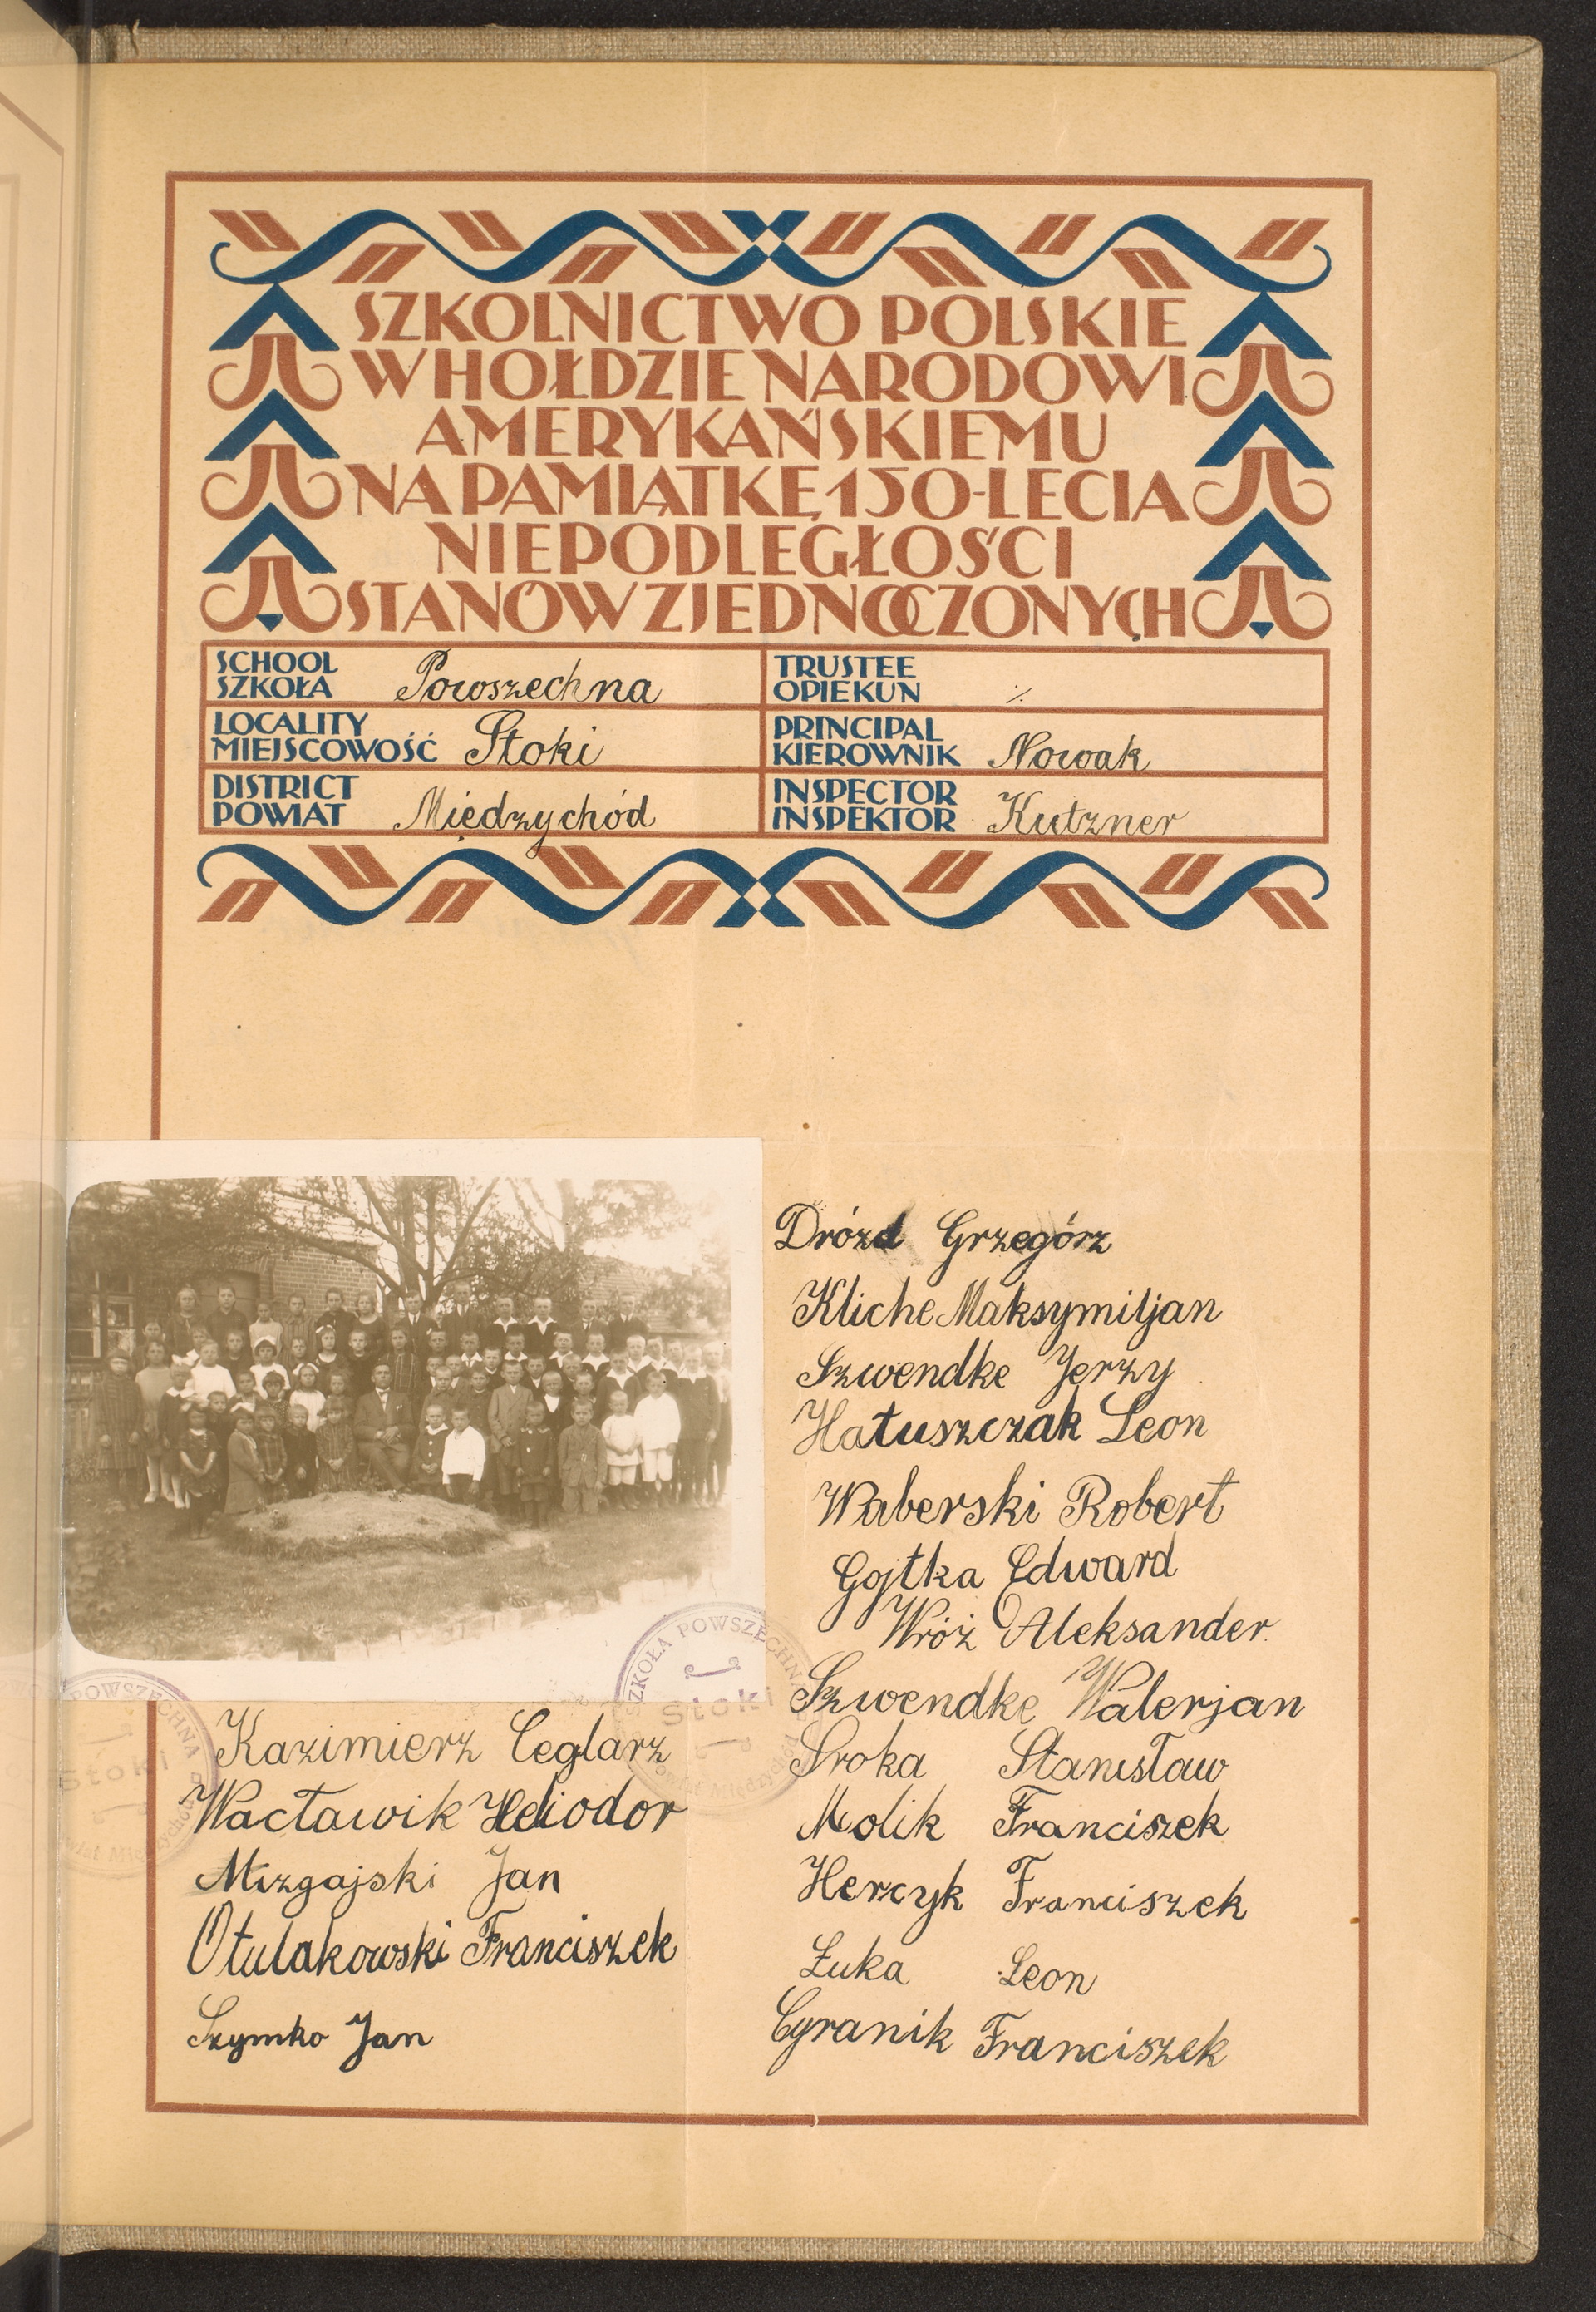 SZKOLNICTWO POLSKIE
W HOŁDZIE NARODOWI
AMERYKAŃSKIEMU
NA PAMIĄTKĘ 150-LECIA
NIEPODLEGŁOŚCI
STANÓW ZJEDNOCZONYCH
SCHOOL
SZKOŁA Powszechna
TRUSTEE
OPIEKUN ⁒
LOCALITY
MIEJSCOWOŚĆ Stoki
PRINCIPAL
KIEROWNIK Nowak
DISTRICT
POWIAT Międzychód
INSPECTOR
INSPEKTOR Kutzner
SZKOŁA POWSZECHNA
Stoki
Powiat Międzychód
POWSZECHNA
Stoki
Kazimierz Ceglarz
Wacławik Heliodor
Mizgajski Jan
Otulakowski Franciszek
Szymko Jan
Drózd Grzegórz
Kliche Maksymiljan
Szwendke Jerzy
Hatuszczak Leon
Waberski Robert
Gojtka Edward
Wróż Aleksander.
Szwendke Walerjan
Sroka Stanisław
Molik Franciszek
Herzyk Franciszek
Łuka Leon
Cyranik Franciszek